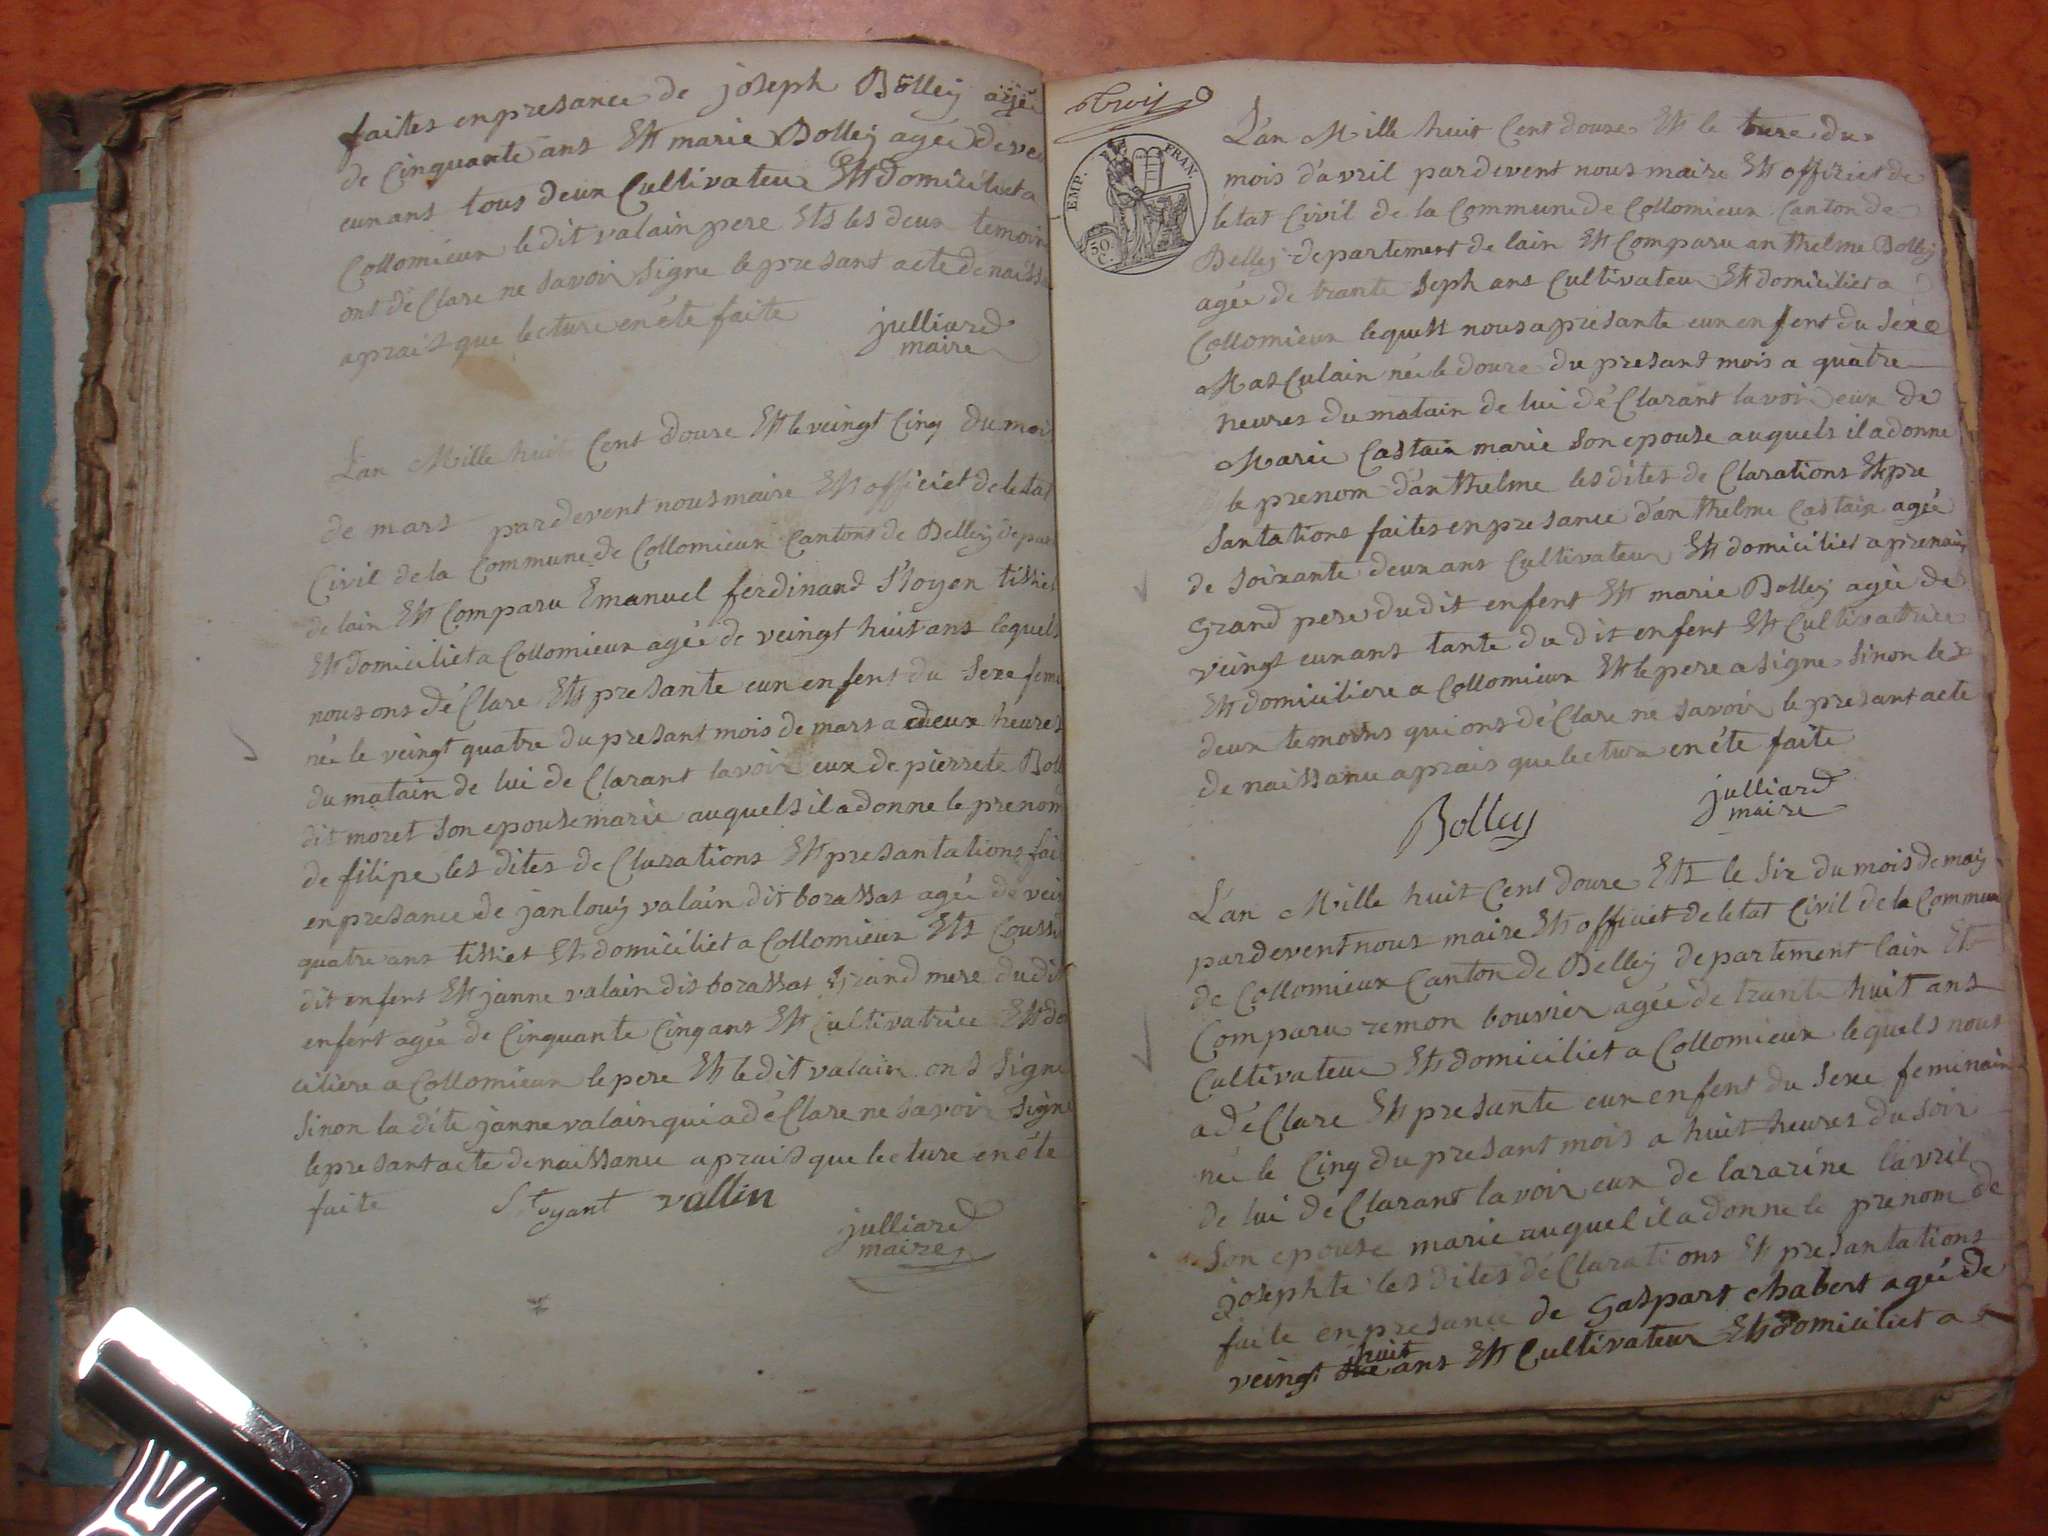 faites en presance de joseph Bolley agée
de Cinquante ans Ett marie Bolley agée de vei
eun ans tous deux Cultivateur Ett domicilieta
Collomieux le dit valain pere Ett les deux temoin
ont dé Clare ne savoir signe le presant acte de naissa
aprais que lecture en éte faite
julliard
maire
L'an Mille huit Cent douze Ett le veingt Cinq du moi
de mars pardevent nous maire Ett officiet de letat
Civil de la Commune de Collomieux Cantons de Belley depart
de lain Ett Comparu Emanuel ferdinand S'toyen tissiet
Ett domiciliet a Collomieux agée de veingt huit ans lequels
nous ons dé Clare Ett presante eun enfent du Sexe femi
née le veingt quatre du presant mois de mars a deux heures
du matain de lui de Clarant lavoir eux de pierrete Boll
dit moret son epouse marie auquels il a donne le prenom
de filipe les dites de Clarations Ett presantations fait
en presance de jan louis valain dit borassat agée de vein
quatre ans tissiet Ett domiciliet a Collomieux Ett Coussi
dit enfent Ett janne valain dit borassat Grand mere du dit
enfent agée de Cinquante Cinq ans Ett Cultivatrice Ett do
ciliere a Collomieux le pere Ett le dit valain ont signe
sinon la dite janne valain qui a dé Clare ne savoir signe
le presant acte de naissance aprais que lecture en éte
faite
S'toyant vallin
julliard
maire
trois
EMP. FRAN.
50 C.
L'an Mille huit Cent douze Ett le treze du
mois d'avril pardevent nous maire Ett officiet de
letat Civil de la Commune de Collomieux Canton de
Belley departement de lain Ett Comparu anthelme Bolley
agée de trante seph ans Cultivateur Ett domiciliet a
Collomieux lequell nous a presante eun enfent du Sexe
Masculain née le douze du presant mois a quatre
heures du matain de lui dé Clarant lavoir eux de
Marie Castain marie son epouse auquels il a donne
le prenom d'anthelme les dites de Clarations Ett pre
santations faites en presance d'anthelme Castain agée
de soixante deux ans Cultivateur Ett domiciliet a
Grand pere du dit enfent Ett marie Bolley agée de
veingt eun ans tante du dit enfent Ett Cultivatrice
Ett domiciliere a Collomieux Ett le pere a signe sinon les
deux temoins qui ons dé Clare ne savoir le presant acte
de naissance aprais que lectura en éte faite
Bolley
julliard
maire
L'an Mille huit Cent douze Ett le six du mois de may
pardevent nous maire Ett officiet de letat Civil de la Commune
de Collomieux Canton de Belley departement lain Ett
Comparu remon bouvier agée de trante huit ans
Cultivateur Ett domiciliet a Collomieux lequels nous
a dé Clare Ett presante eun enfent du Sexe feminain
née le Cinq du presant mois a huit heures du soir
de lui de Clarant lavoir eux de lararine lavril
son epouse marie auquel il a donne le prenom de
josephte les dites dé Clarations Ett presantations
faite en presance de Gaspart Chabert agée de
huit
veingt ans Ett Cultivateur Ett domiciliet a